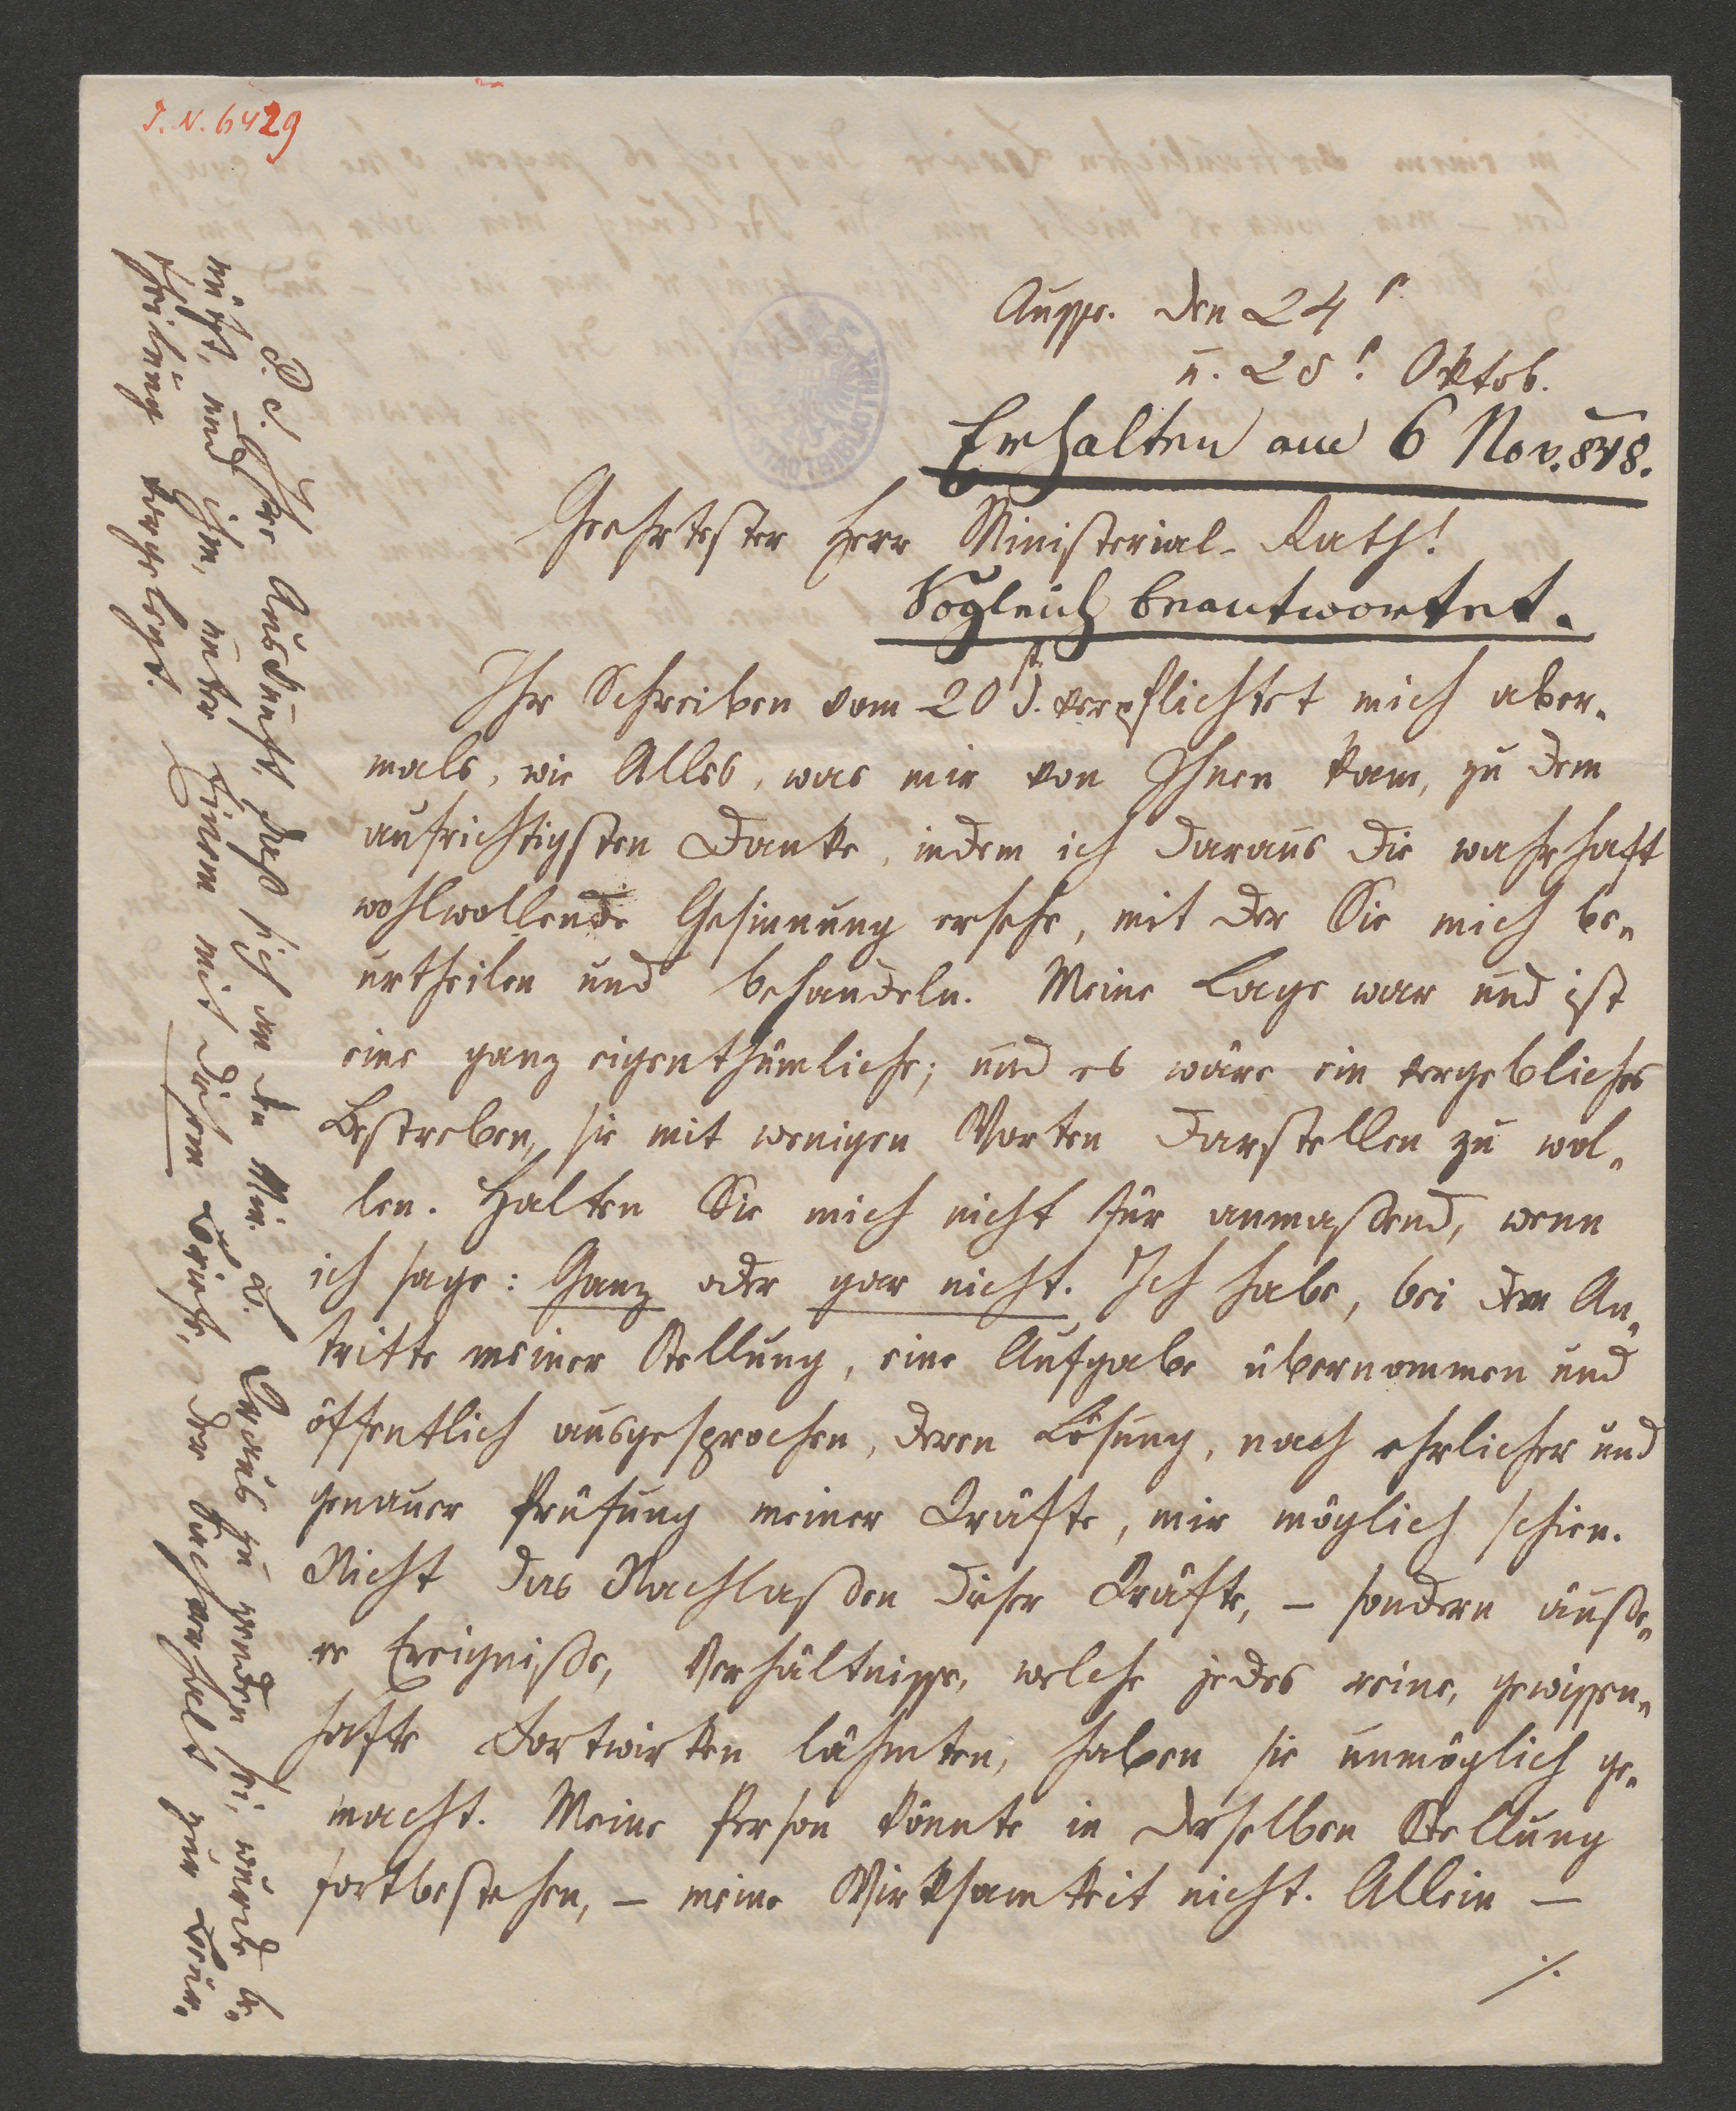 I. N. 6429
Aussee. den 24t
u. 25t Oktob.
Erhalten am 6 Nov. 848.
Geehrtester Herr Ministerial-Rath!
Sogleich beantwortet.
Ihr Schreiben vom 20st d. verpflichtet mich aber-
mals, wie Alles, was mir von Ihnen kam, zu dem
aufrichtigsten Danke, indem ich daraus die wahrhaft
wohlwollende Gesinnung ersehe, mit der Sie mich be-
urtheilen und behandeln. Meine Lage war und ist
eine ganz eigenthümliche; und es wäre ein vergebliches
Bestreben, sie mit wenigen Worten darstellen zu wol-
len. Halten Sie mich nicht für anmaßend, wenn
ich sage: Ganz oder gar nicht. Ich habe, bei dem An-
tritte meiner Stellung, eine Aufgabe übernommen und
öffentlich ausgesprochen, deren Lösung, nach ehrlicher und
genauer Prüfung meiner Kräfte, mir möglich schien.
Nicht das Nachlaßen dieser Kräfte, – sondern äuße-
re Ereigniße, Verhältnisse, welche jedes reine, gewissen-
hafte Fortwirken lähmten, haben sie unmöglich ge-
macht. Meine Person könnte in derselben Stellung
fortbestehen, – meine Wirksamkeit nicht. Allein –
./.
P. S. Ihre Auskunft, daß sich an den Min. B. Kraus zu wenden sei, wurde be-
nützt, und ihm, unter Einem mit diesem Briefe, der Sachverhalt zur Beur-
theilung vorgelegt.
STADTBIBLIOTHEK